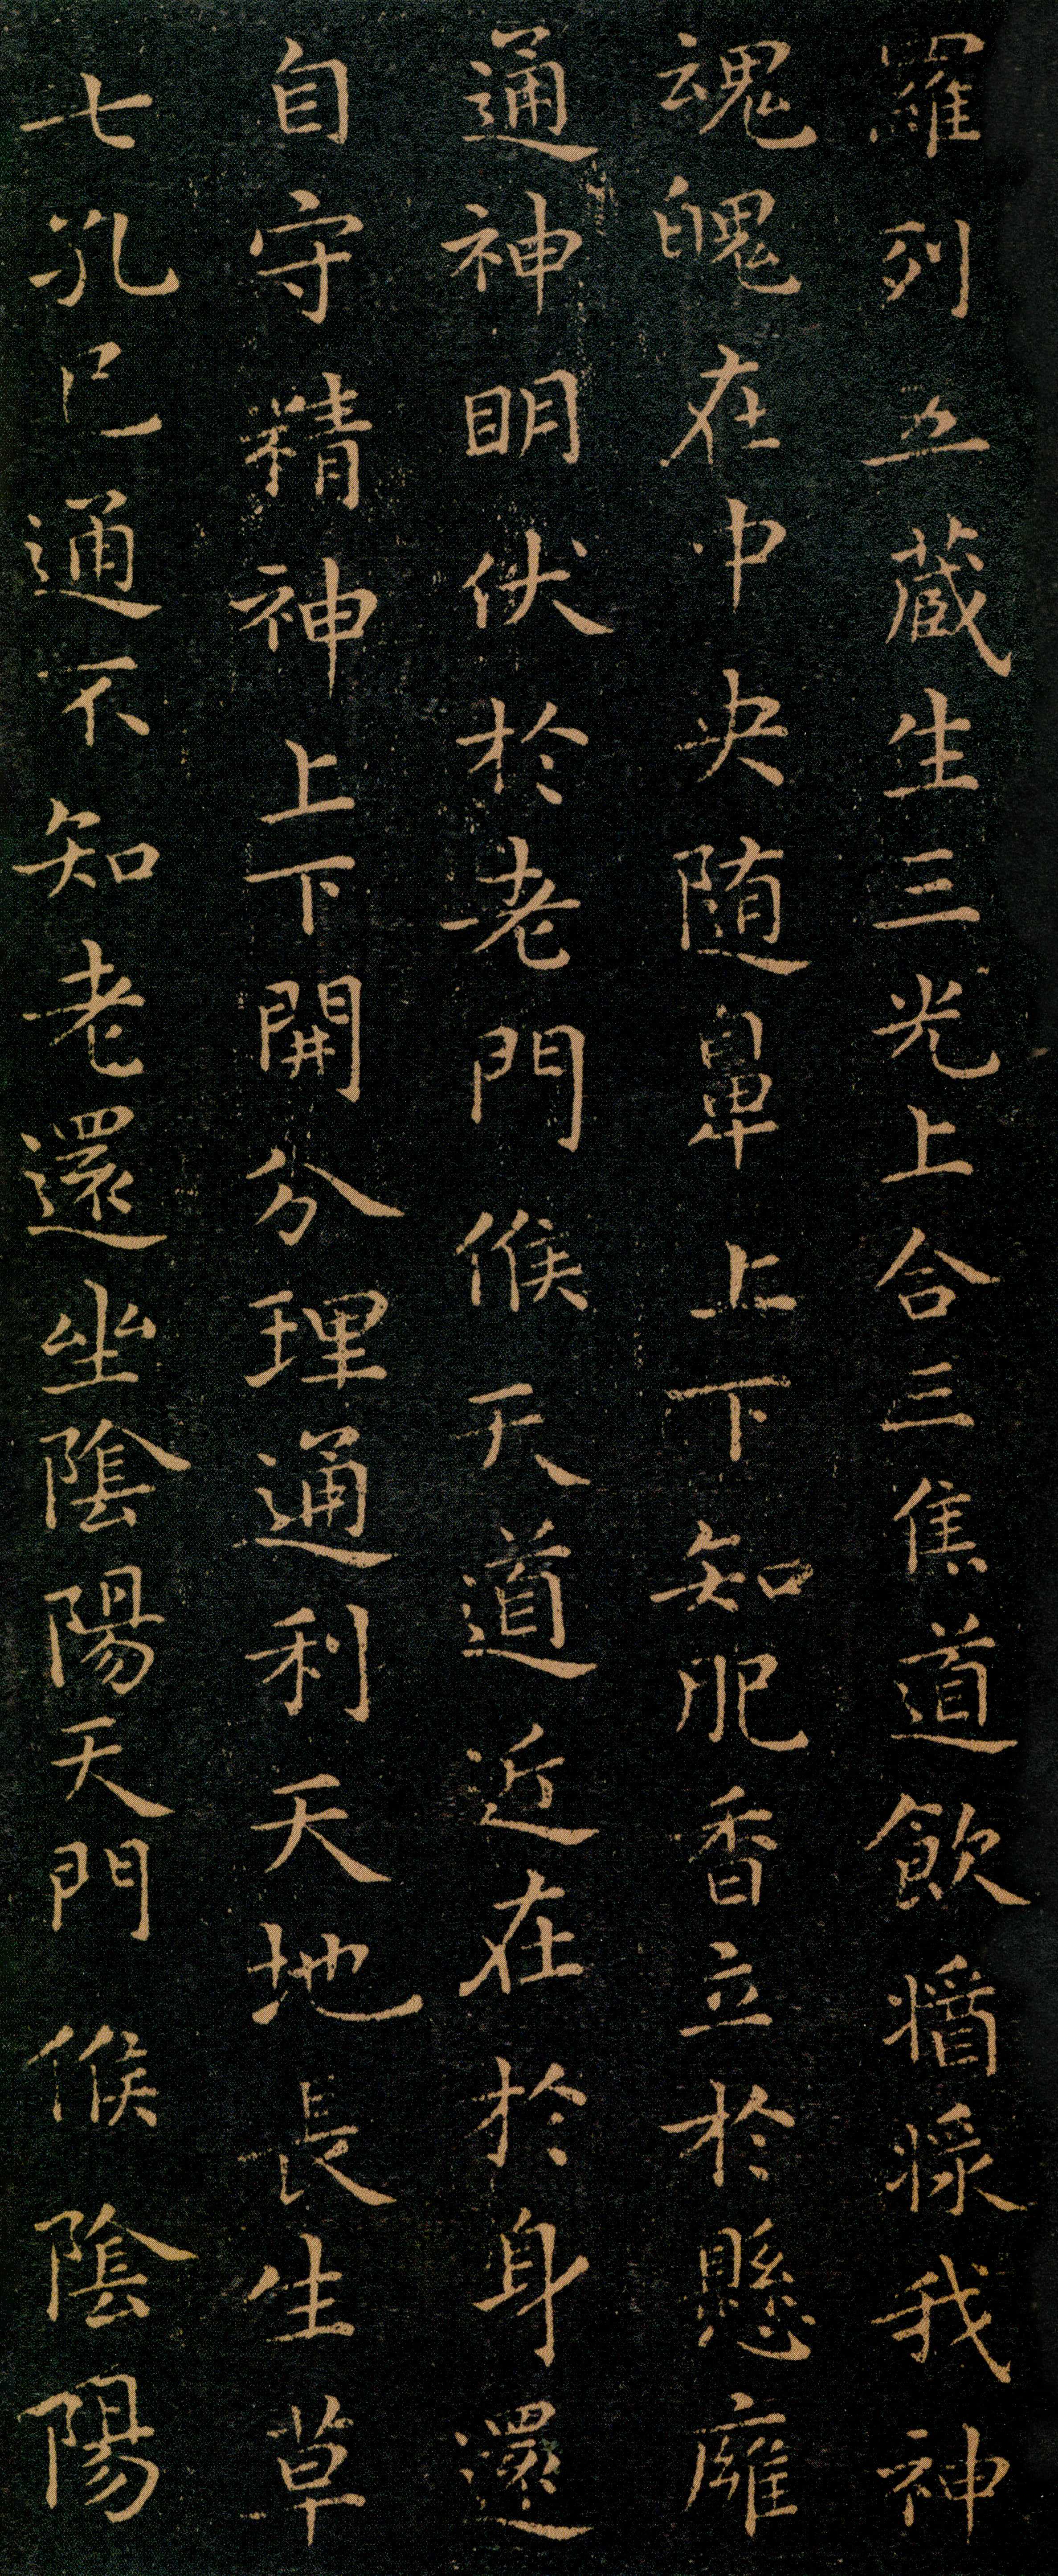 羅列五藏生三光上合三焦道飲醬漿我神
魂魄在中央随鼻上下知肥香立於懸廱
通神明伏於老門候天道近在於身還
自守精神上下開分理通利天地長生草
七孔已通不知老還坐陰陽天門候陰陽